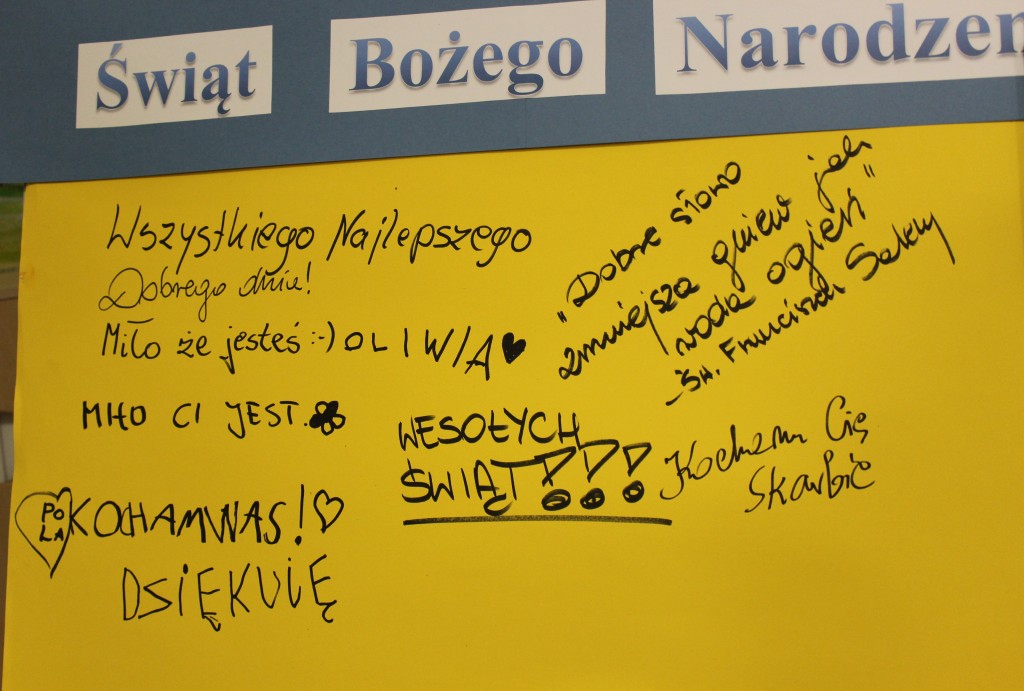 Świąt Bożego Narodzen
Wszystkiego Najlepszego
Dobrego dnia!
Miło że jesteś :-) OLIWIA
MIŁO CI JEST.
POLA
KOCHAMWAS!
DSIĘKUIĘ
WESOŁYCH
ŚWIĄT!!!
„Dobre słowo
zmniejsza gniew jak
woda ogień"
Św. Franciszek Salezy
Kocham Cię
Skarbie